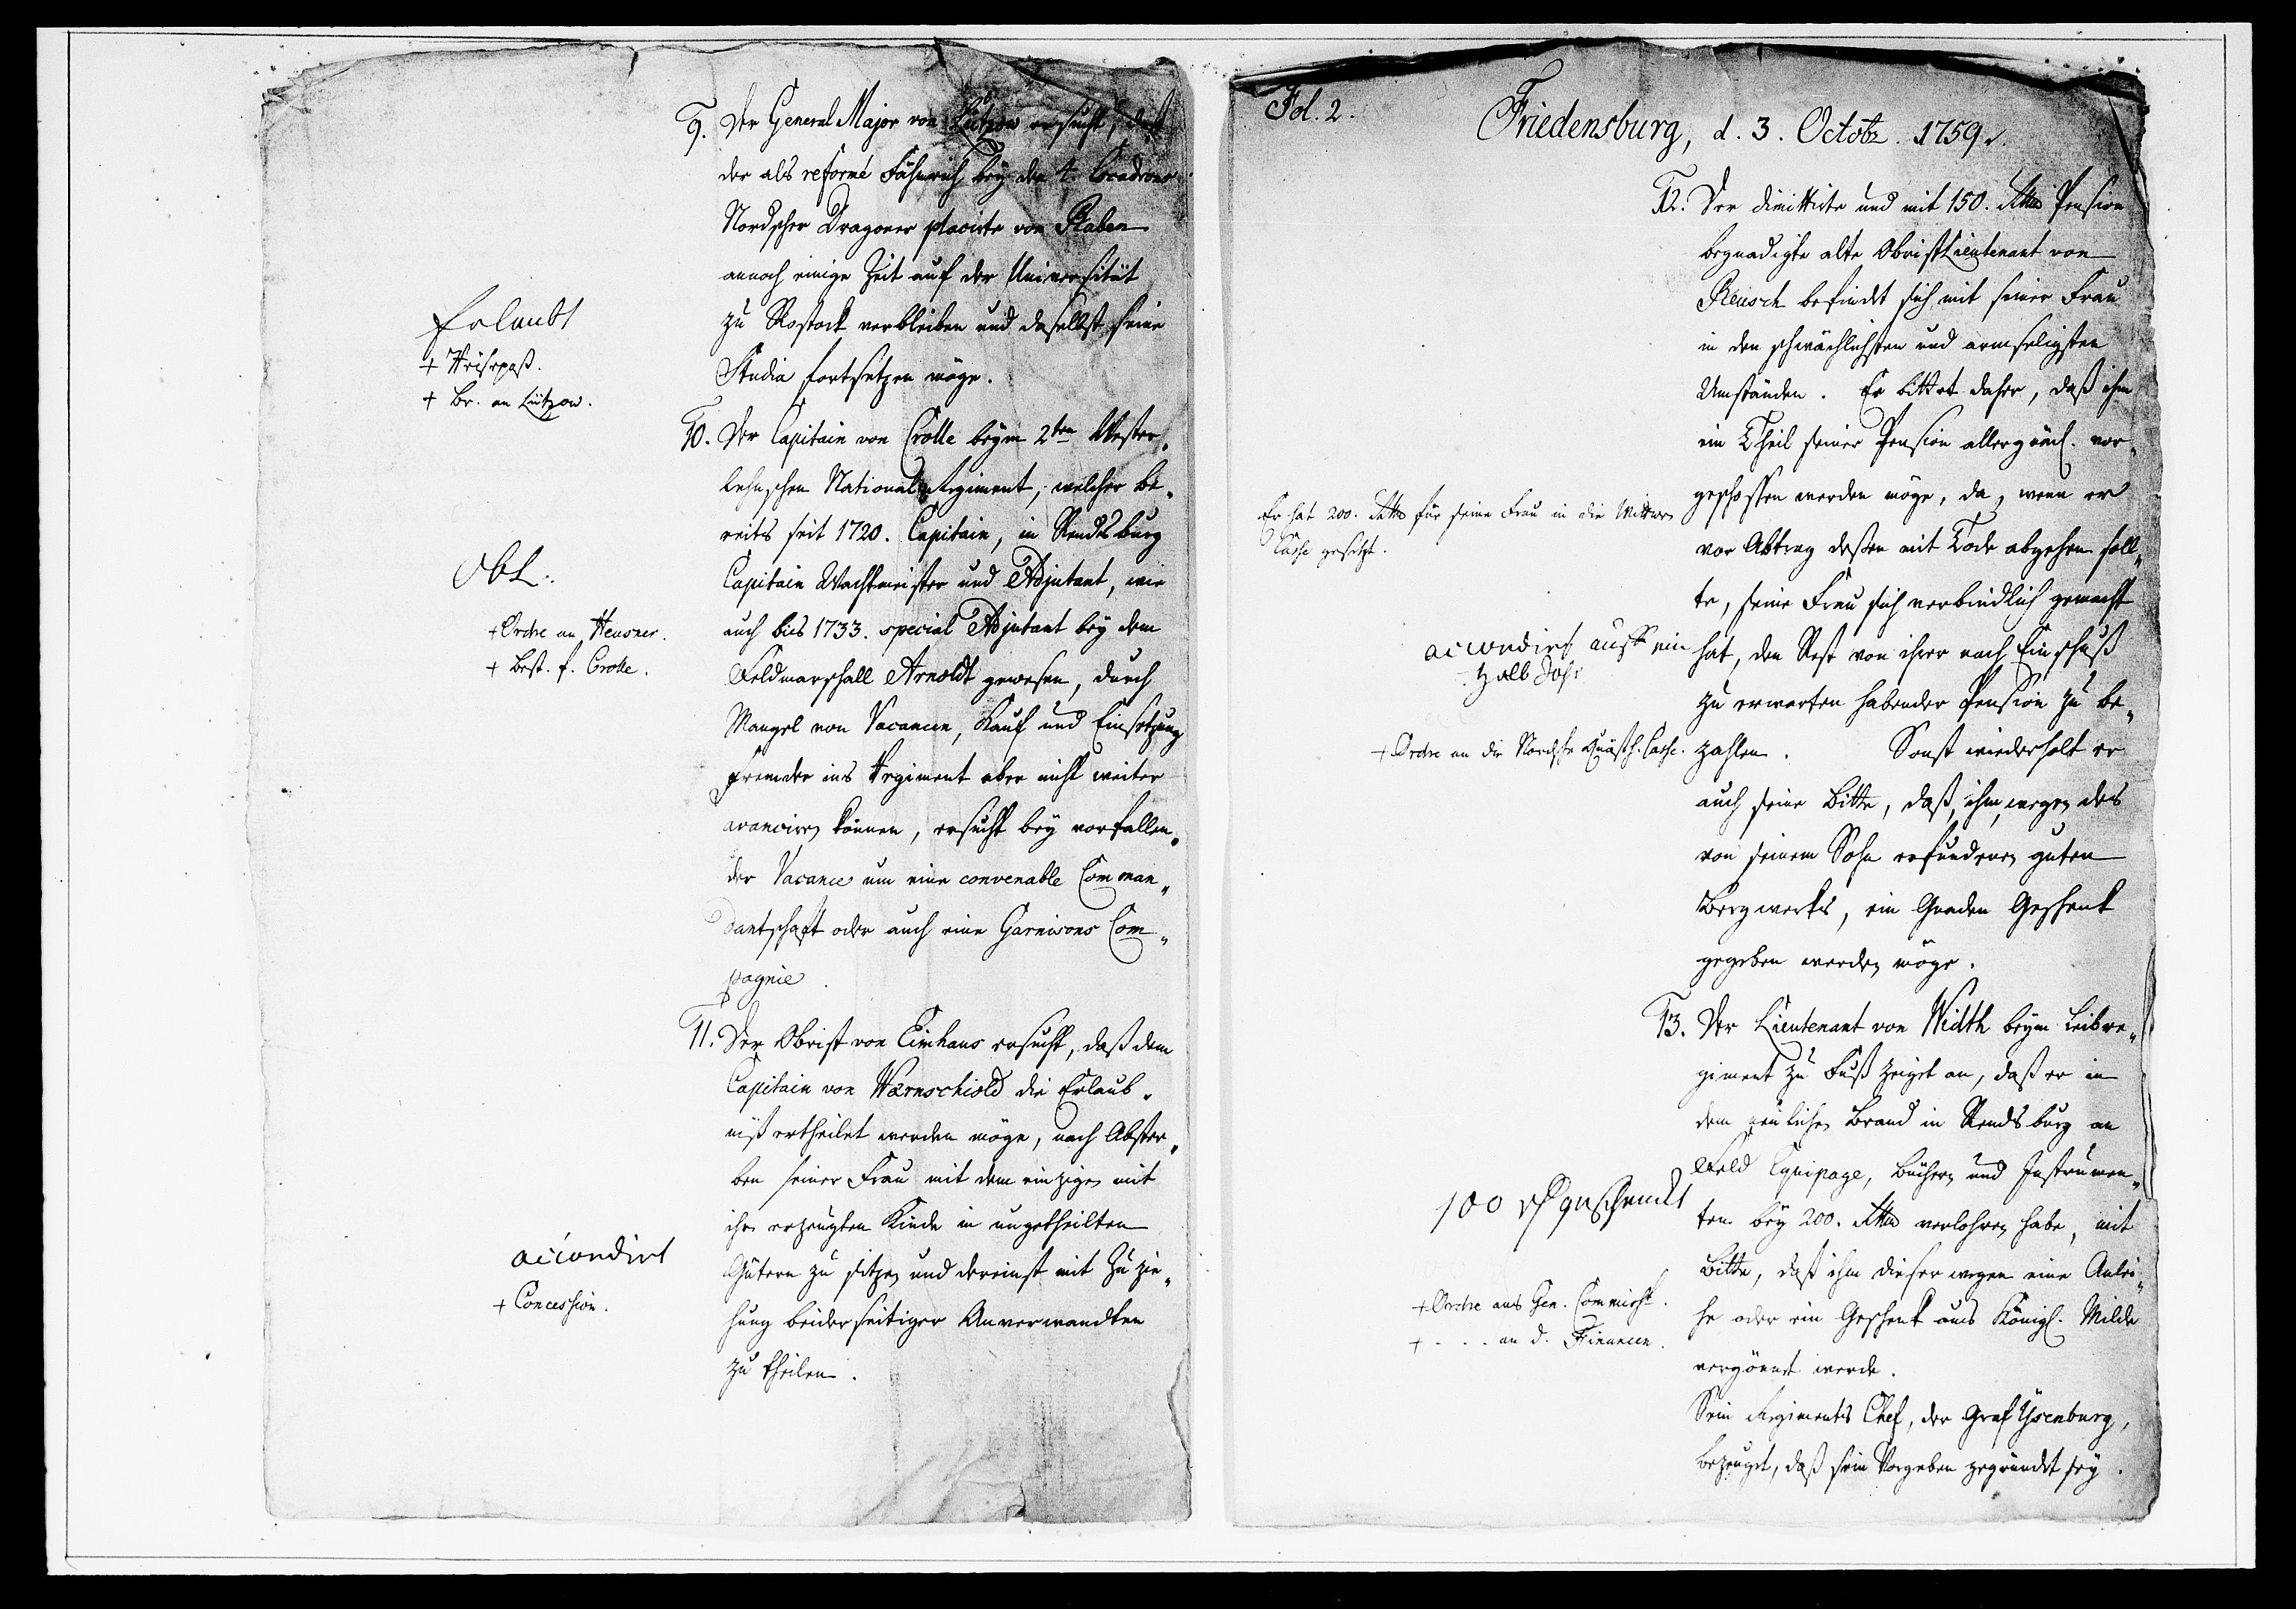 9. Der General Major von Lützow ersucht, daß
der als reformé Fähnrich bey den 4. Escadrons
Nordscher Dragoner placirte von Raben
annoch einige Zeit auf der Universitæt
zu Rostock verbleiben und daselbst seine
Studia fortsetzen möge.
Erlaubt
+ Reisepaß.
+ Br. an Lützow.
10. Der Capitain von Crolle beym 2ten Wester„
lehnschen National Regiment, welcher be„
reits seit 1720. Capitain, in Rendsburg
Capitain Wachtmeister und Adjutant, wie
auch bis 1733. special Adjutant bey dem
Feldmarschall Arnoldt gewesen, durch
Mangel von Vacancen, Kauf und Einsetzung
fremder ins Regiment aber nicht weiter
avanciren können, ersucht bey vorfallen„
der Vacance um eine convenable Comman„
dantschaft oder auch eine Garnisons Com„
pagnie.
ObL.
+ Ordre an Heusner.
+ Best. f. Crolle.
11. Der Obrist von Eimhaus ersucht, daß dem
Capitain von Wærnschiold die Erlaub„
niß ertheilet werden möge, nach Abster„
ben seiner Frau mit dem einzigen mit
ihr erzeugten Kinde in ungetheilten
Gütern zu sitzen und dereinst mit Zuzie„
hung beiderseitiger Anverwandten
zu theilen.
accordirt
+ Concession.
Fol. 2.
Friedensburg, d. 3. Octobr. 1759.
12. Der dimittirte und mit 150. Rthlr Pension
begnadigte alte ObristLieutenant von
Reusch befindet sich mit seiner Frau
in den schwächlichsten und armseligsten
Umständen. Er bittet daher, daß ihm
ein Theil seiner Pension allergnäd. vor„
geschossen werden möge, da, wenn er
vor Abtrag deßen mit Tode abgehen soll„
te, seine Frau sich verbindlich gemacht
hat, den Rest von ihrer nach Einschuß
zu erwarten habender Pension zu be„
zahlen. Sonst wiederholt er
auch seine Bitte, daß ihm, wegen des
von seinem Sohn erfundenen guten
Bergwerks, ein Gnaden Geschenk
gegeben werden möge.
Er hat 200. Rthlr für seine Frau in die Wittwen
Casse gesetzt.
accordirt auff ein
halb Jahr
+ Ordre an die Nordsche Quæsth. Casse.
13. Der Lieutenant von Width beym Leibre„
giment zu Fuß zeiget an, daß er in
dem neulichen Brand in Rendsburg an
Feld Equipage, Büchern und Instrumen„
ten bey 200. Rthlr verlohren habe, mit
Bitte, daß ihm dieserwegen eine Anlei„
he oder ein Geschenk aus Königl. Milde
vergönnet werde.
Sein Regiments Chef, der Graf Ysenburg,
bezeuget, daß sein Vorgeben gegründet sey.
100 geschenckt
+ Ordre ans Gen. Commiss.
+ . . . . an d. Financen.